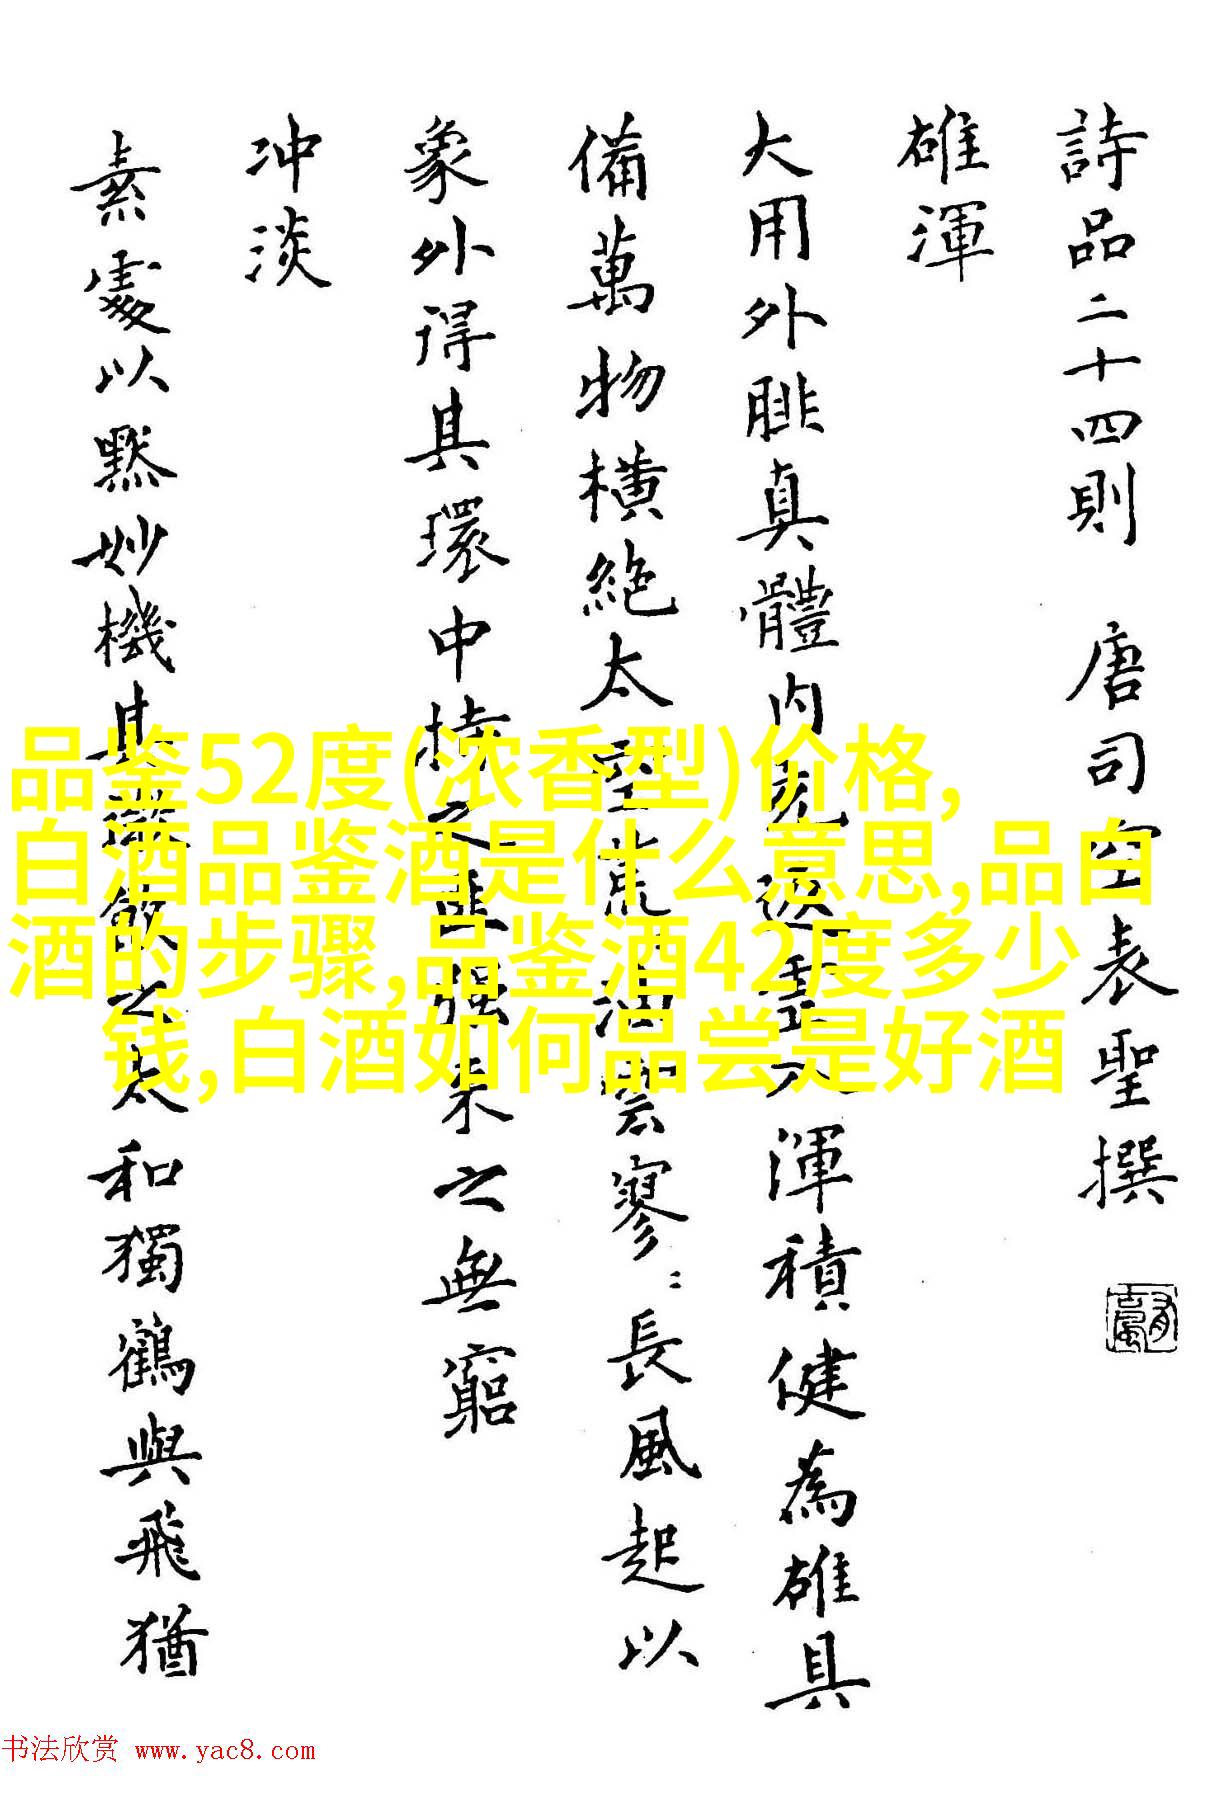 詩品二十四則 唐司空表聖撰
雄渾
大用外腓真體内充返虚入渾積健為雄具
備萬物橫絶太空荒〻油雲寥〻長風起以
象外得其環中持之匪强来之無窮
冲淡
素處以黙妙機其微飲之太和獨鶴與飛猶
品鉴52度(浓香型)价格,
白酒品鉴酒是什么意思,品白
酒的步骤,品鉴酒42度多少
钱,白酒如何品尝是好酒
书法欣赏 www.yac8.com